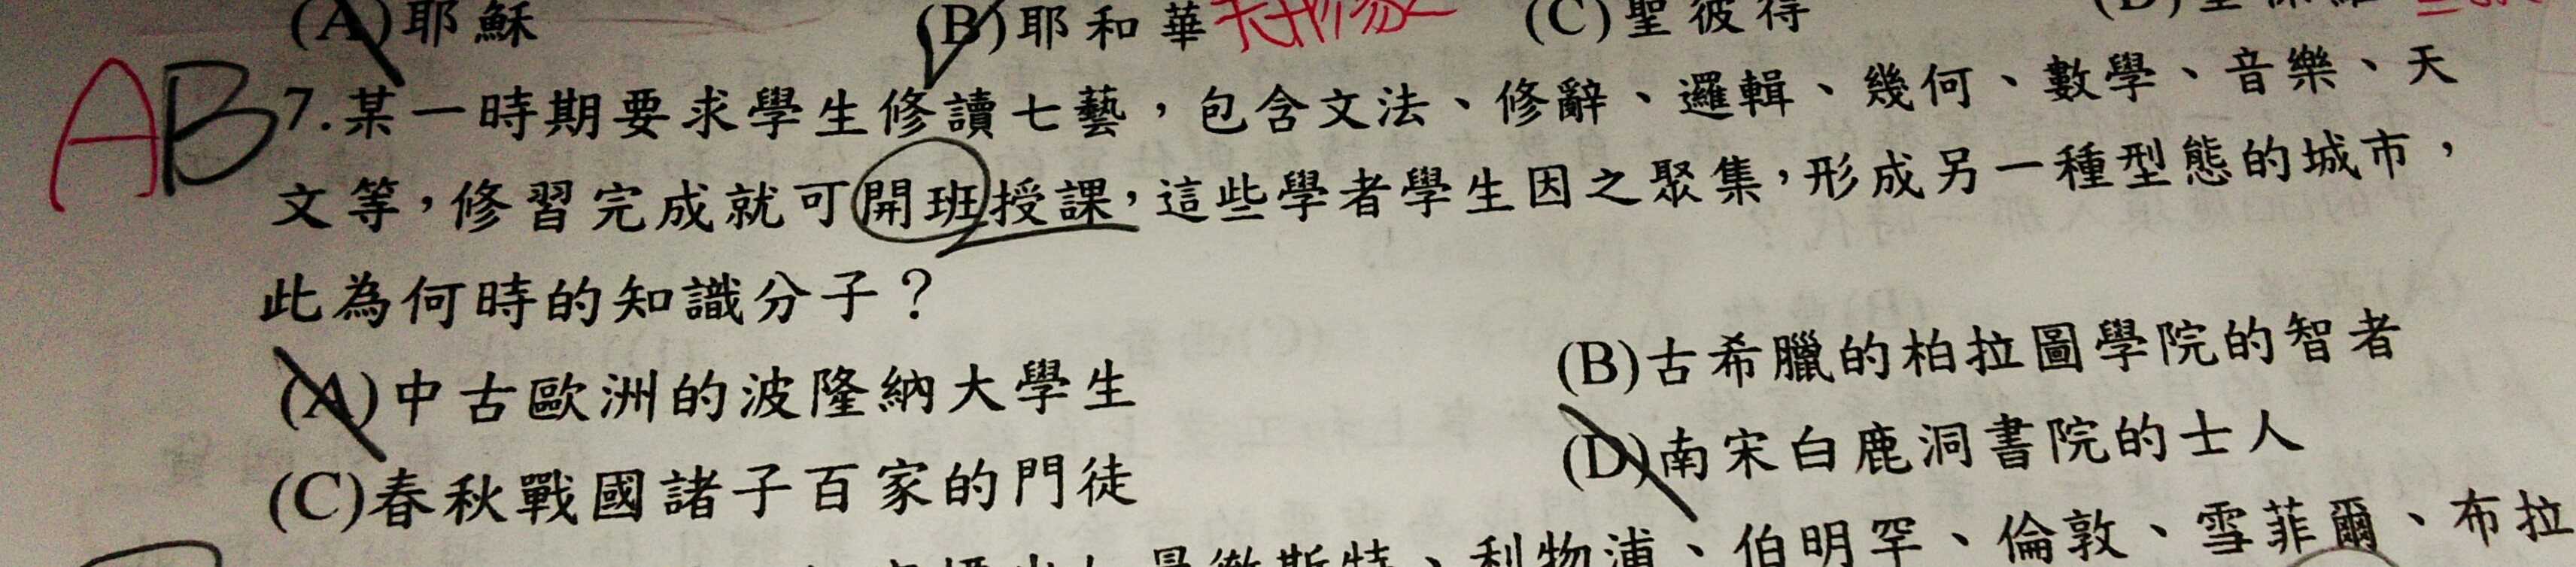 (A)耶穌 (B)耶和華 (C)聖彼得
AB 7.某一時期要求學生修讀七藝，包含文法、修辭、邏輯、幾何、數學、音樂、天
文等，修習完成就可開班授課，這些學者學生因之聚集，形成另一種型態的城市，
此為何時的知識分子？
(A)中古歐洲的波隆納大學生 (B)古希臘的柏拉圖學院的智者
(C)春秋戰國諸子百家的門徒 (D)南宋白鹿洞書院的士人
利物浦、伯明罕、倫敦、雪菲爾、布拉